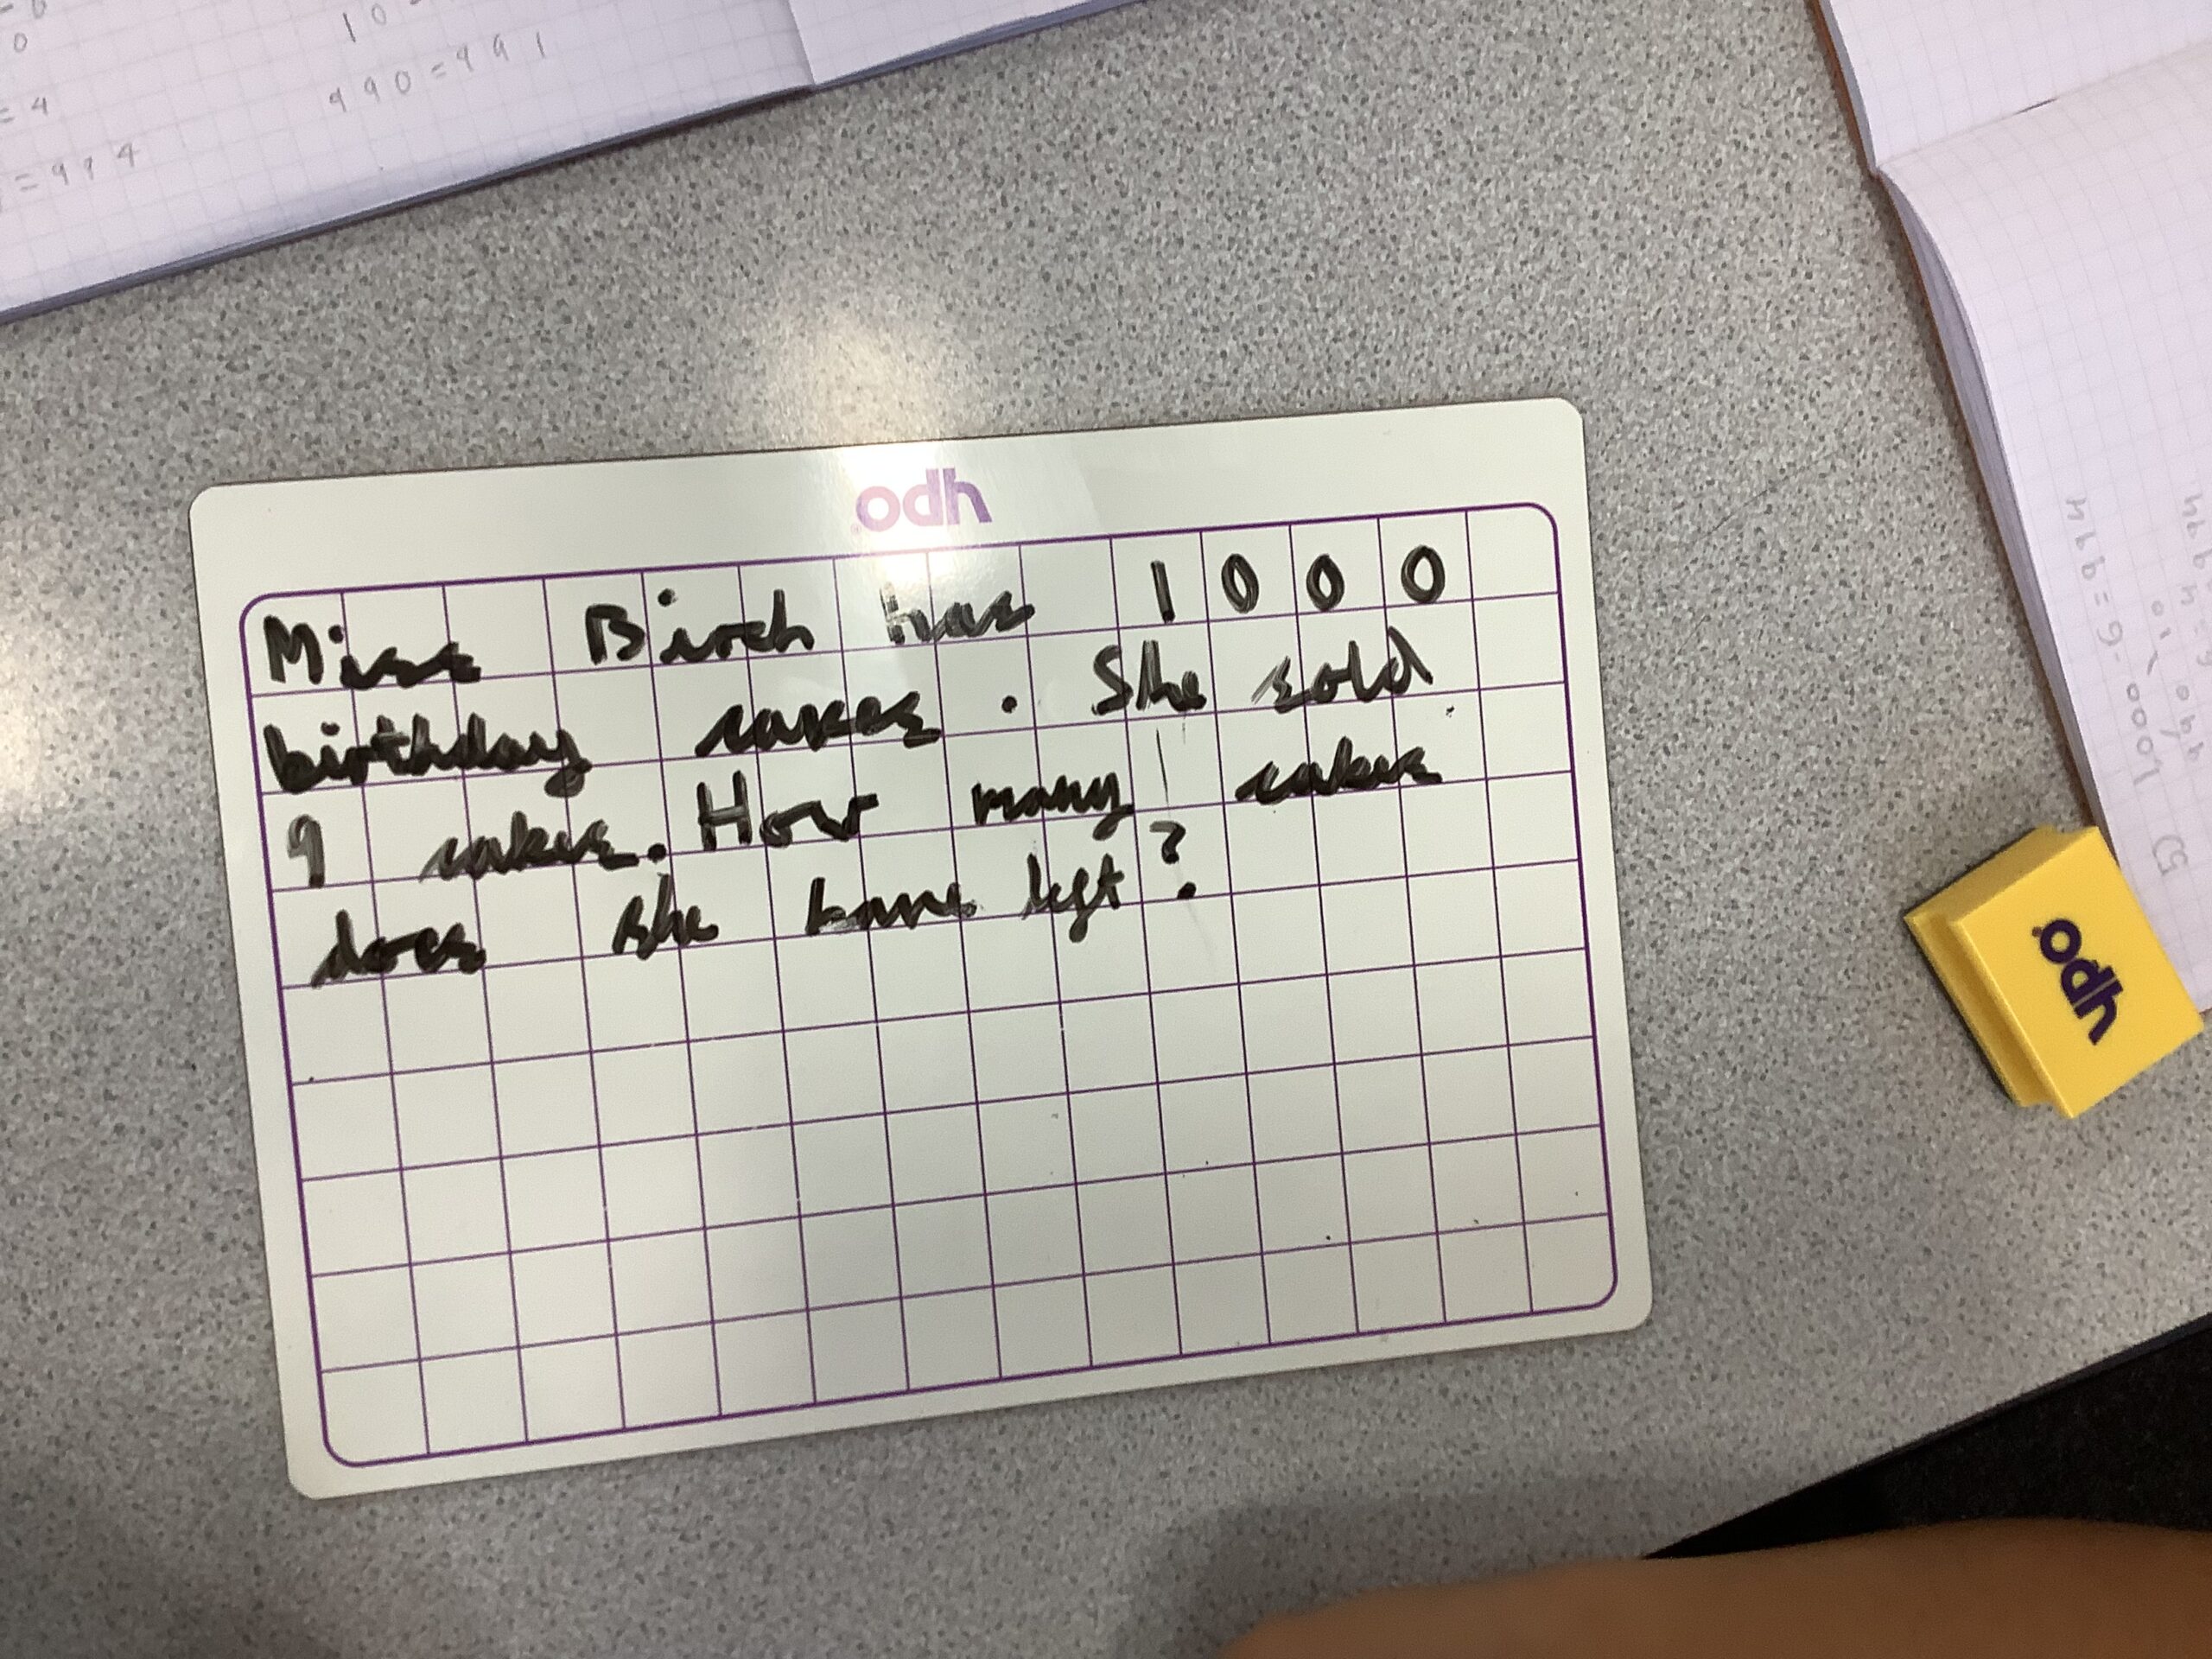 0
0
= 4
= 994
10
990 = 991
odh
Miss Birch has 1000
birthday cakes. She sold
9 cakes. How many cakes
does she have left?
1000 - 6 = 994
odh